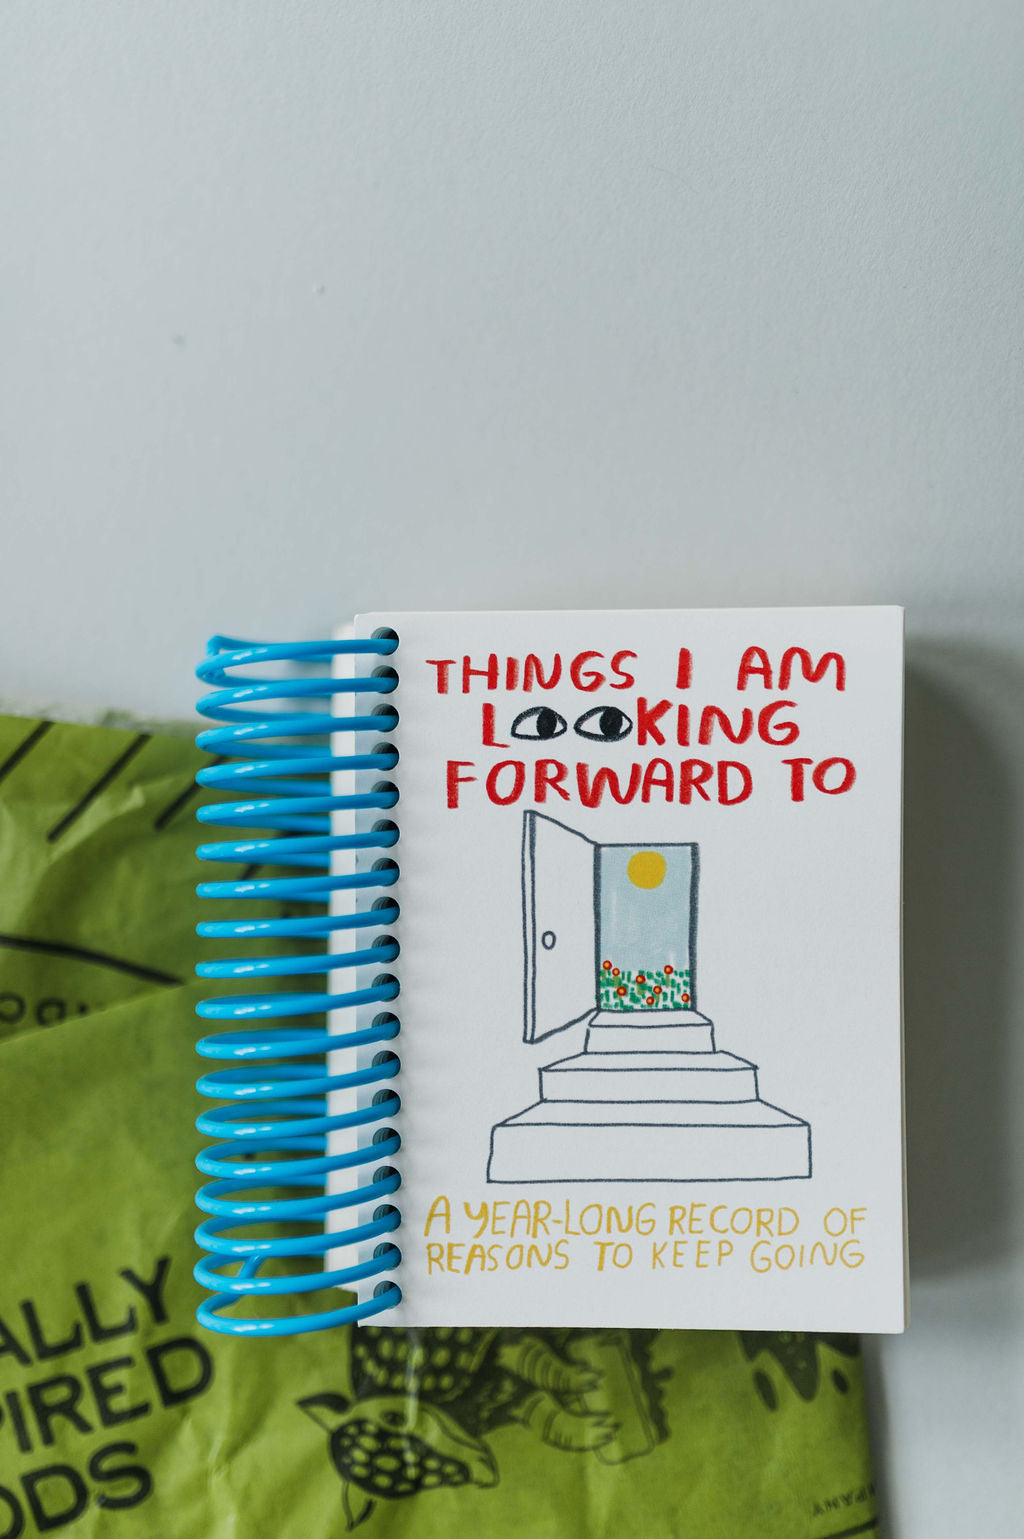 THINGS I AM
LOOKING
FORWARD TO
A YEAR-LONG RECORD OF
REASONS TO KEEP GOING